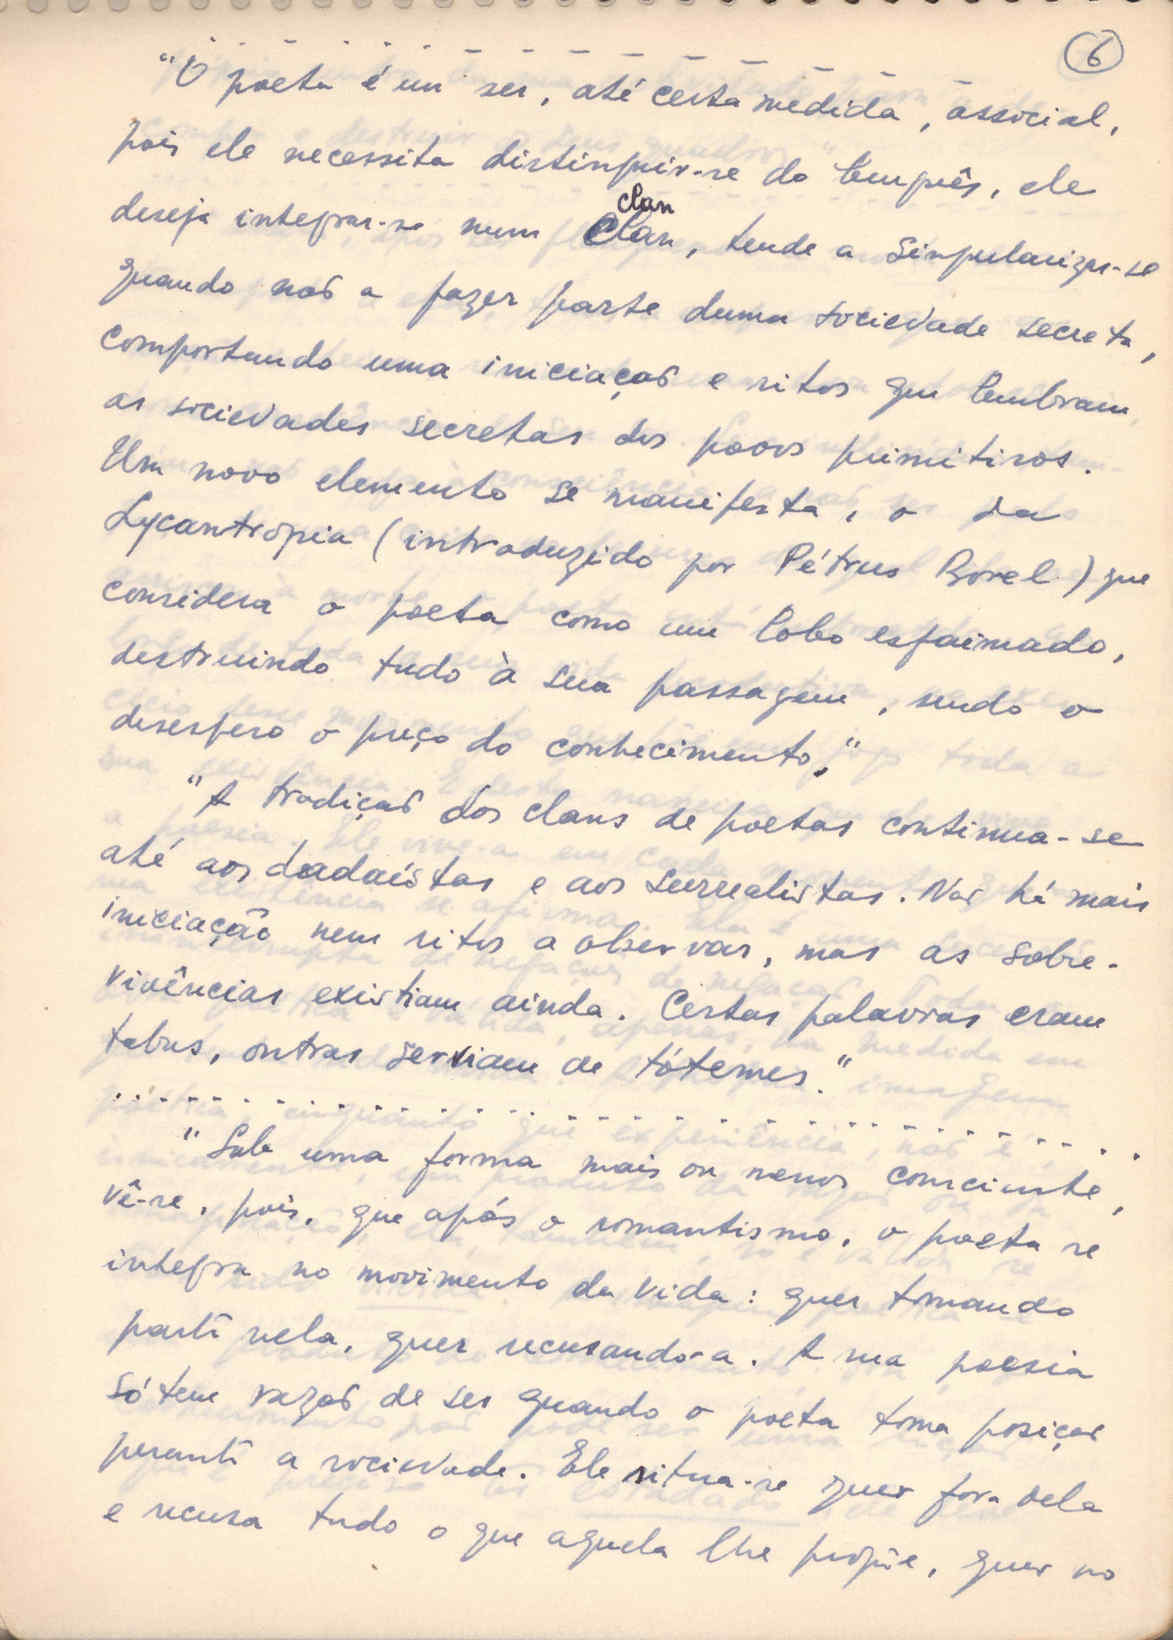 6
"O poeta é um ser, até certa medida, associal,
pois ele necessita distinguir-se do burguês, ele
deseja integrar-se num clan
clan, tende a singularizar-se
quando não a fazer parte duma sociedade secreta,
comportando uma iniciação e ritos que lembram
as sociedades secretas dos povos primitivos.
Um novo elemento se manifesta, o da
Lycantropia (introduzido por Pétrus Borel) que
considera o poeta como um lobo esfaimado,
destruindo tudo à sua passagem, sendo o
desespero o preço do conhecimento."
"A tradição dos clans de poetas continua-se
até aos dadaístas e aos surrealistas. Não há mais
iniciação nem ritos a observar, mas as sobre-
vivências existiam ainda. Certas palavras eram
tabus, outras serviam de tótemes."
. . . . . . . . . . . . . . . . . . . . . . . . . . . . . .
"Sob uma forma mais ou menos consciente,
vê-se, pois, que após o romantismo, o poeta se
integra no movimento da vida: quer tomando
parte nela, quer recusando-a. A sua poesia
só tem razão de ser quando o poeta toma posição
perante a sociedade. Ele situa-se quer fora dela
e recusa tudo o que aquela lhe propõe, quer no